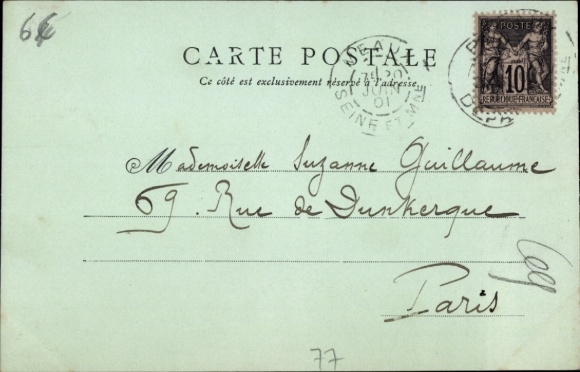 CARTE POSTALE
Ce côté est exclusivement réservé à l'adresse
POSTE
10
REPUBLIQUE FRANÇAISE
MEAUX
JUIN
01
SEINE-ET-MNE
Mademoiselle Suzanne Guillaume
69. Rue de Dunkerque
Paris
69
77